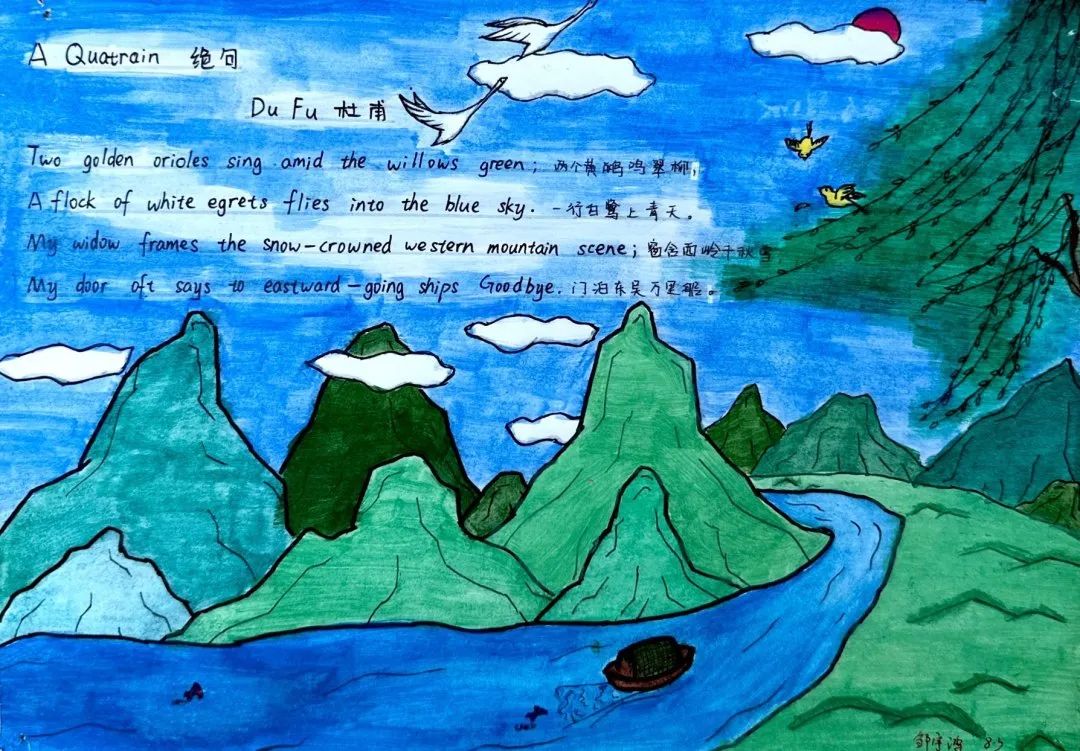 A Quatrain 绝句
Du Fu 杜甫
Two golden orioles sing amid the willows green; 两个黄鹂鸣翠柳,
A flock of white egrets flies into the blue sky. 一行白鹭上青天。
My widow frames the snow-crowned western mountain scene; 窗含西岭千秋雪
My door oft says to eastward-going ships Goodbye. 门泊东吴万里船。
8.5